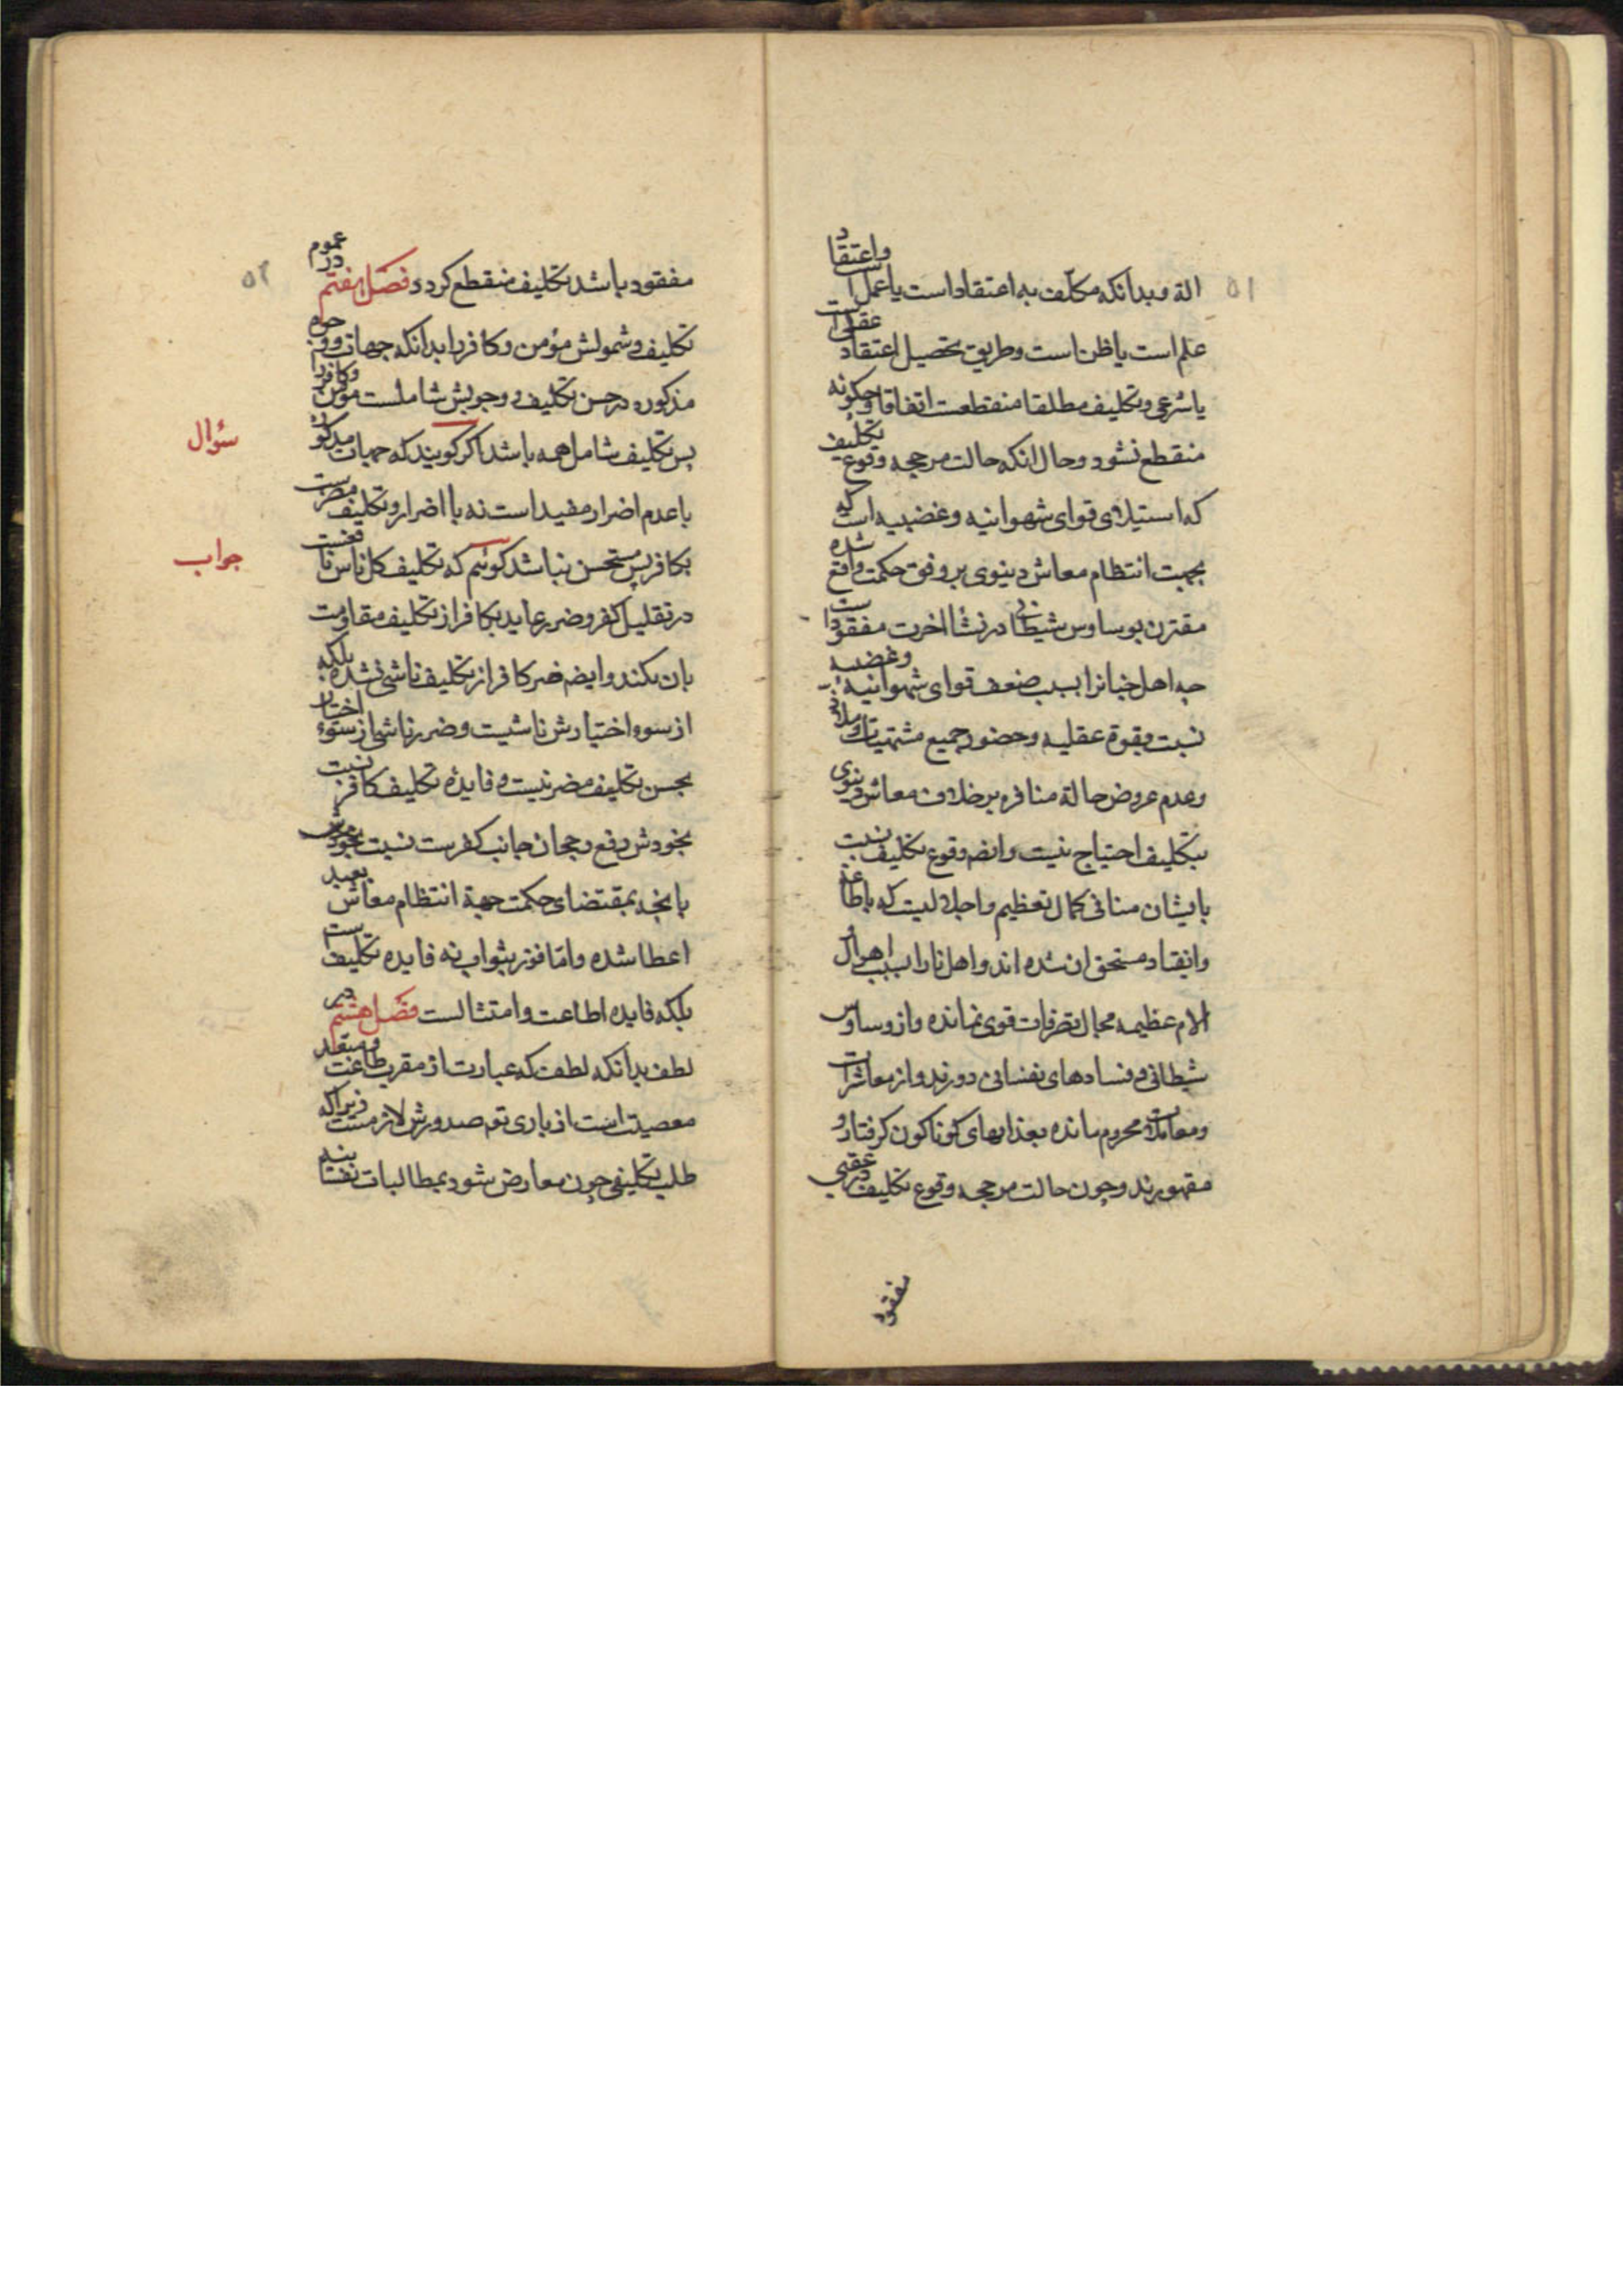 ۵۱
الة و بدانکه مکلف به اعتقاد است یا عمل است و اعتقاد
علم است یا ظن است و طریق تحصیل اعتقاد عقلی است
یا شرعی و تکلیف مطلقا منقطعست اتفاقا و چکونه
منقطع نشود و حال انکه حالت مرجحه وقوع تکلیف
که استیلای قوای شهوانیه و غضبیه است که
بجهت انتظام معاش دنیوی بر وفق حکمت واقع شده
مقترن بوساوس شیطانی در نشأ اخرت مفقود است
چه اهل جنانرا بسبب ضعف قوای شهوانیه و غضبیه
نسبت بقوة عقلیه و حضور جمیع مشتهیات و ملائم
و عدم عروض حالة منافره بر خلاف معاش دنیوی
بتکلیف احتیاج نیست و ایضم وقوع تکلیف نسبت
بایشان منافی کمال تعظیم و اجلالیست که باطاعة
و انقیاد مستحق ان شده اند و اهل نار را بسبب اهوال
الام عظیمه مجال تصرفات قوی نمانده و از وساوس
شیطانی و فسادهای نفسانی دورند و از معاشرات
و معاملات محروم مانده بعذابهای کوناکون کرفتار و
مقهورند و چون حالت مرجحه وقوع تکلیف در عقبی
مفقود
۵۲
مفقود باشد تکلیف منقطع کردد فصل هفتم در عموم
تکلیف و شمولش مؤمن و کافر را بدانکه جهات
مذکوره در حسن تکلیف و وجوبش شاملست مؤمن و کافر را
پس تکلیف شامل همه باشد اکر کویند که جهات مذکوره
سؤال
با عدم اضرار مفید است نه با اضرار و تکلیف مضرست
بکافر پس مستحسن نباشد کوئیم که تکلیف کل ناس نافعست
جواب
در تقلیل کفر و ضرر عاید بکافر از تکلیف مقاومت
بان نکند و ایضم ضرر کافر از تکلیف ناشی نشده بلکه
از سوء اختیارش ناشیست و ضرر ناشی از سوء اختیار
بحسن تکلیف مضر نیست و فایدهٔ تکلیف کافر نسبت
بخودش رفع رجحان جانب کفرست نسبت بخودش
بانچه بمقتضای حکمت جهة انتظام معاش بعبد
اعطا شده و امّا فوز بثواب نه فایده تکلیف است
بلکه فایده اطاعت و امتثالست فصل هشتم در
لطف بدانکه لطف که عبارت از مقرب طاعت و مبعد
معصیت است از باری تعم صدورش لازمست زیرا که
طلب تکلیفی چون معارض شود بمطالبات نفسانیه